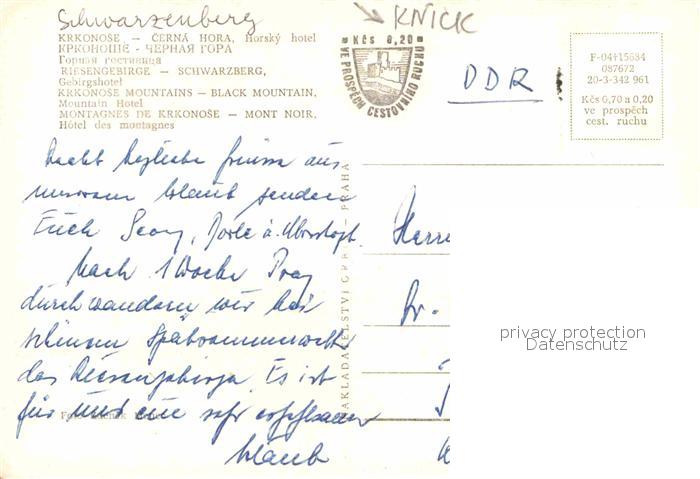 Schwarzenberg
KNICK
KRKONOŠE — ČERNÁ HORA, Horský hotel
КРКОНОШЕ - ЧЕРНАЯ ГОРА
Горная гостиница
RIESENGEBIRGE — SCHWARZBERG,
Gebirgshotel
KRKONOŠE MOUNTAINS — BLACK MOUNTAIN,
Mountain Hotel
MONTAGNES DE KRKONOŠE — MONT NOIR,
Hôtel des montagnes
Kčs 0,20
VE PROSPĚCH CESTOVNÍHO RUCHU
DDR
F-04†15684
087672
20-3-342 961
Kčs 0,70 a 0,20
ve prospěch
cest. ruchu
Recht herzliche Grüsse aus
unserem Urlaub senden
Euch
Nach 1 Woche Prag
durchwandern wir bei
schönem Spätsommerwetter
das Riesengebirge. Es ist
für uns ein sehr erholsamer
Urlaub
NAKLADATELSTVÍ PRAHA
Herrn
Dr.
privacy protection
Datenschutz